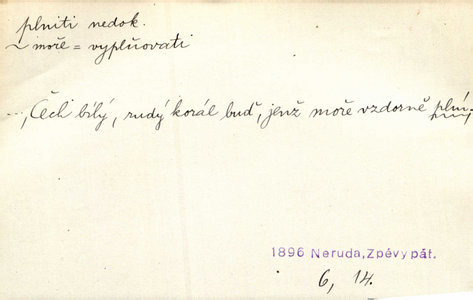 plniti nedok.
~ moře = vyplňovati
..., Čech bílý, rudý korál buď, jenž moře vzdorně plní,
1896 Neruda, Zpěvy pát.
6, 14.